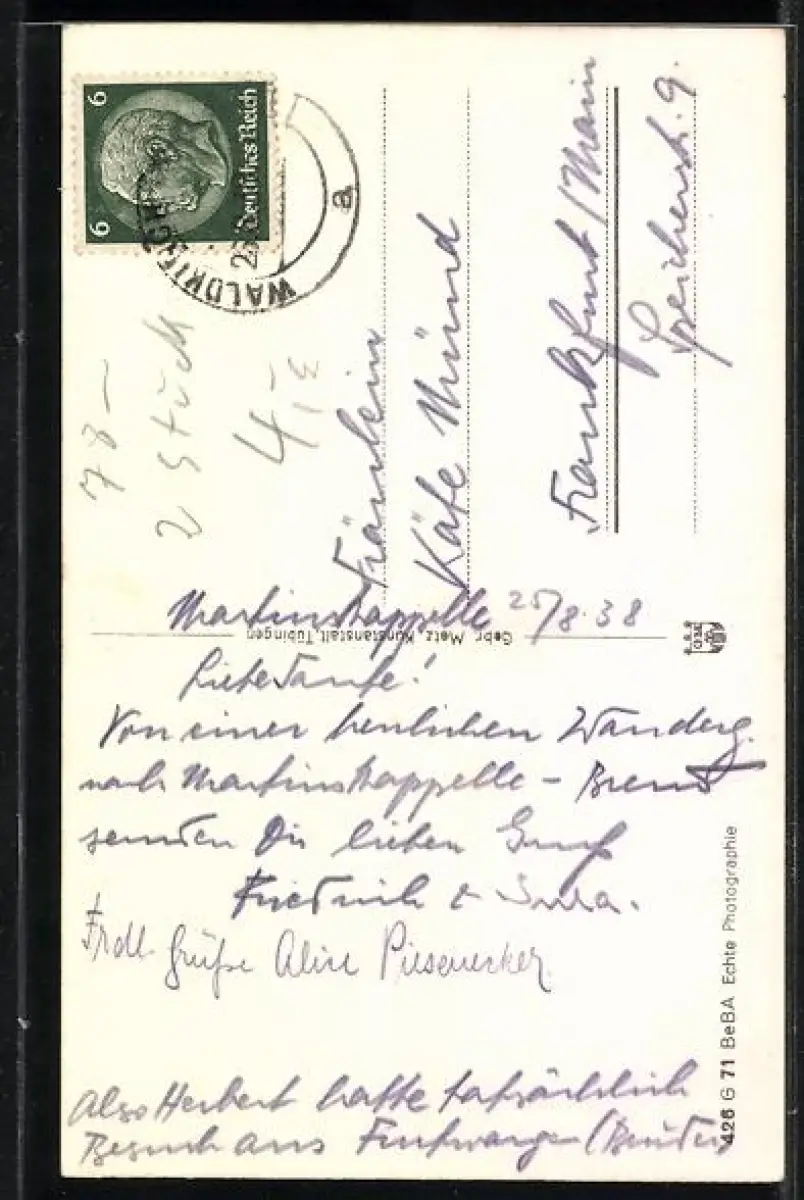 6 6
Deutsches Reich
WALDKIRCH
25
a
78 —
2 Stück
4
Fräulein
Käte Münd
Frankfurt/Main
Speicherstr. 9.
Martinskappelle 25/8.38
Gebr. Metz, Kunstanstalt, Tübingen
Liebe Tante!
Von einer herrlichen Wanderg.
nach Martinskappelle – Brend
senden Dir lieben Gruß
Friedrich &
Frdl. Grüße Alice
Also Herbert hatte tatsächlich
Besuch aus Furtwangen (Bruder)
426 G 71 BeBA Echte Photographie